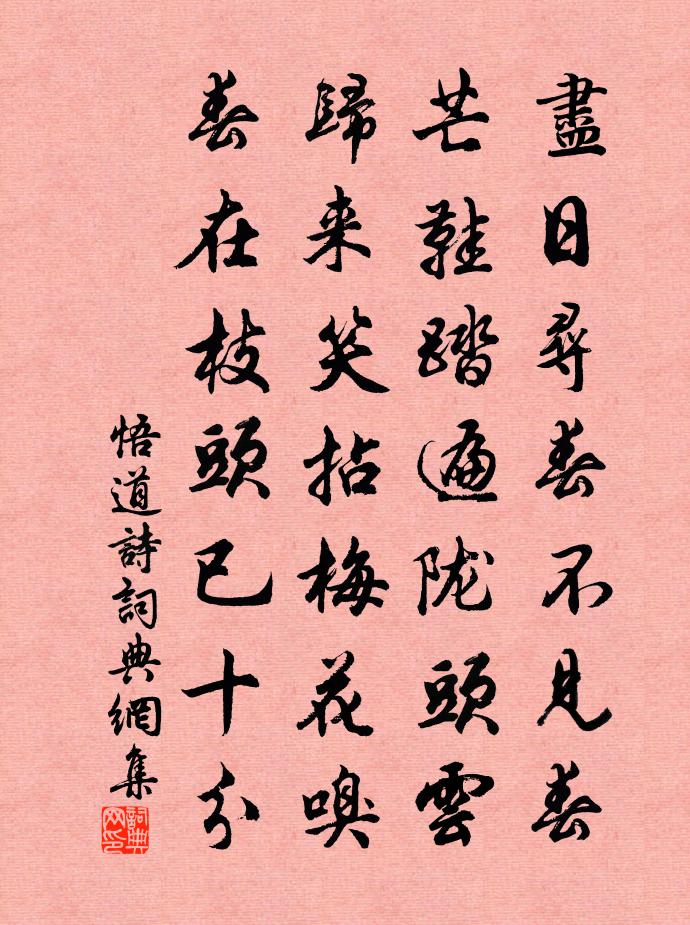 盡日尋春不見春
芒鞋踏遍陇頭雲
歸来笑拈梅花嗅
春在枝頭已十分
悟道詩詞典網集
詞典网印